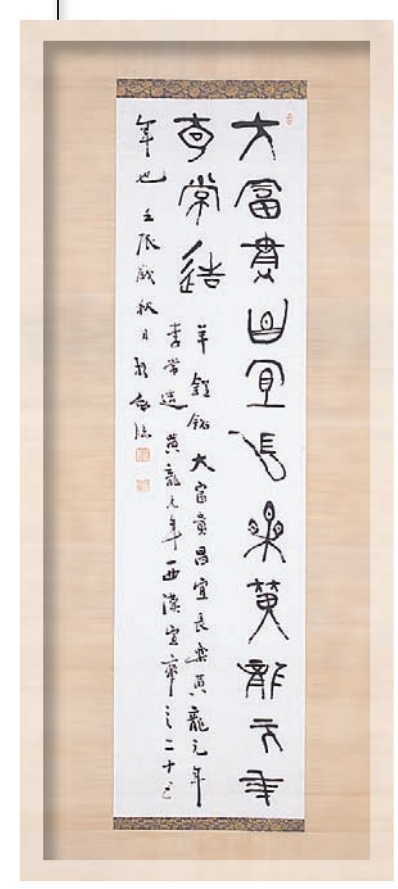 大富貴昌宜長樂黃龍元年
李常造
羊鐙銘大富貴昌宜長樂黃龍元年
李常造黃龍元年西漢宣帝之二十五
年也壬辰歲秋日於